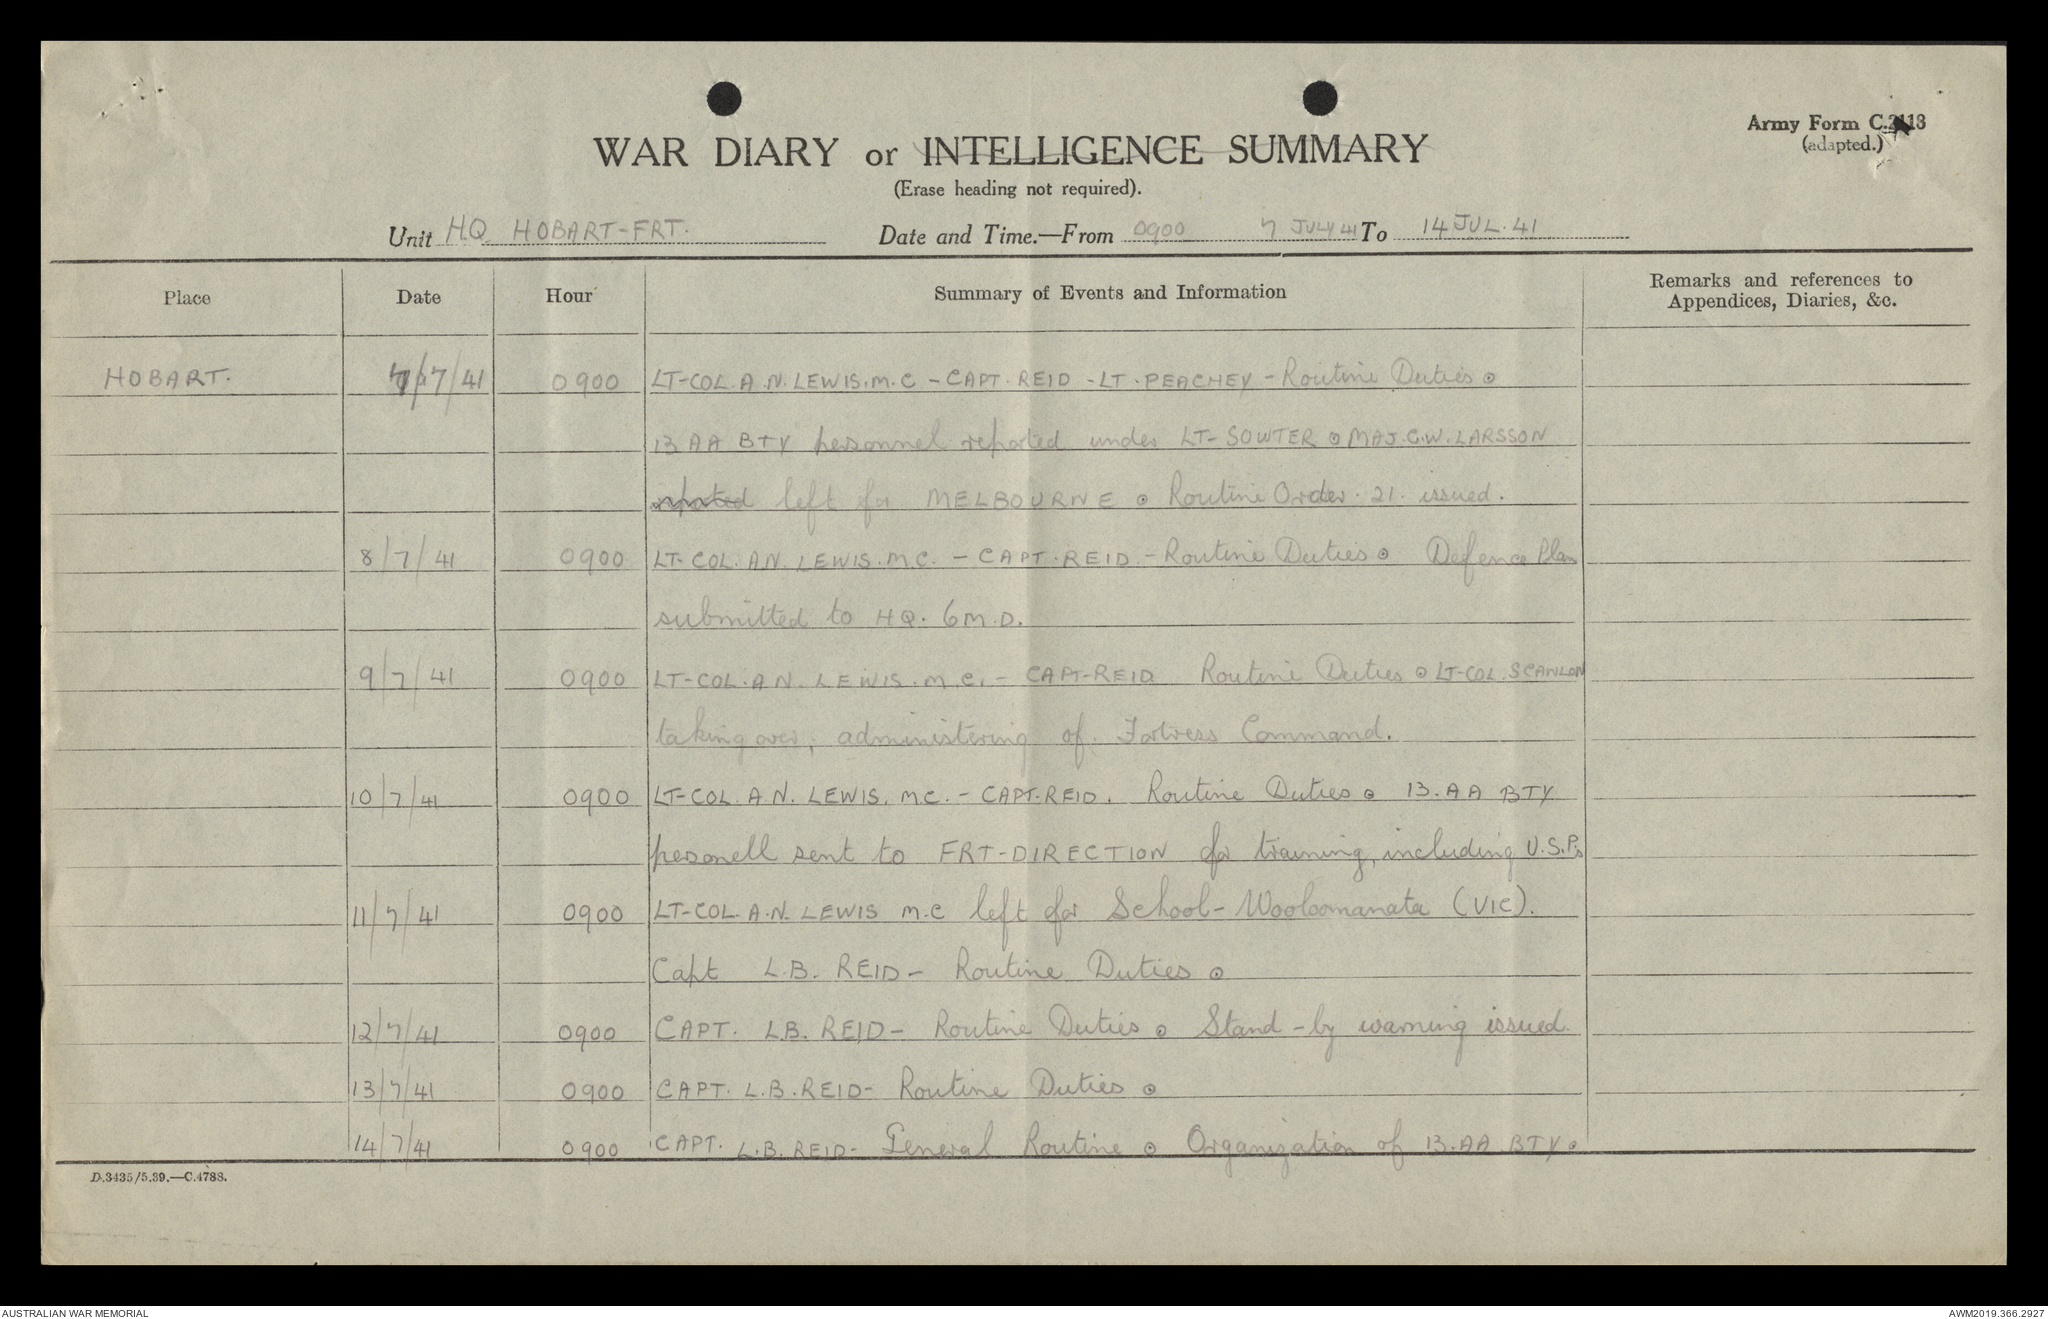 Army Form C.2118
(adapted.)
WAR DIARY or INTELLIGENCE SUMMARY
(Erase heading not required).
Unit HQ HOBART-FRT. Date and Time.—From 0900 7 JULY 41 To 14 JUL. 41
Place Date Hour Summary of Events and Information Remarks and references to
Appendices, Diaries, &c.
HOBART. 7/7/41 0900 LT-COL. A.N. LEWIS. M.C - CAPT. REID - LT. PEACHEY - Routine Duties ⊙
13 AA BTY personnel reported under LT-SOWTER ⊙ MAJ. C.W. LARSSON
reported left for MELBOURNE ⊙ Routine Order. 21. issued.
8/7/41 0900 LT-COL. A.N. LEWIS. M.C. - CAPT. REID. - Routine Duties ⊙ Defence Plan
submitted to HQ. 6 M.D.
9/7/41 0900 LT-COL. A N. LEWIS. M.C. - CAPT-REID Routine Duties ⊙ LT-COL. SCANLON
taking over, administering of. Fortress Command.
10/7/41 0900 LT-COL. A.N. LEWIS. M.C. - CAPT. REID. Routine Duties ⊙ 13. A A BTY
personell sent to FRT-DIRECTION for training, including U.S.Ps
11/7/41 0900 LT-COL. A.N. LEWIS M.C left for School - Wooloomanata (VIC).
Capt L.B. REID - Routine Duties ⊙
12/7/41 0900 CAPT. L.B. REID - Routine Duties ⊙ Stand-by warning issued.
13/7/41 0900 CAPT. L.B. REID - Routine Duties ⊙
14/7/41 0900 CAPT. L.B. REID - General Routine ⊙ Organization of 13. AA BTY ⊙
D.3435/5.39.—C.4788.
AUSTRALIAN WAR MEMORIAL AWM2019.366.2927